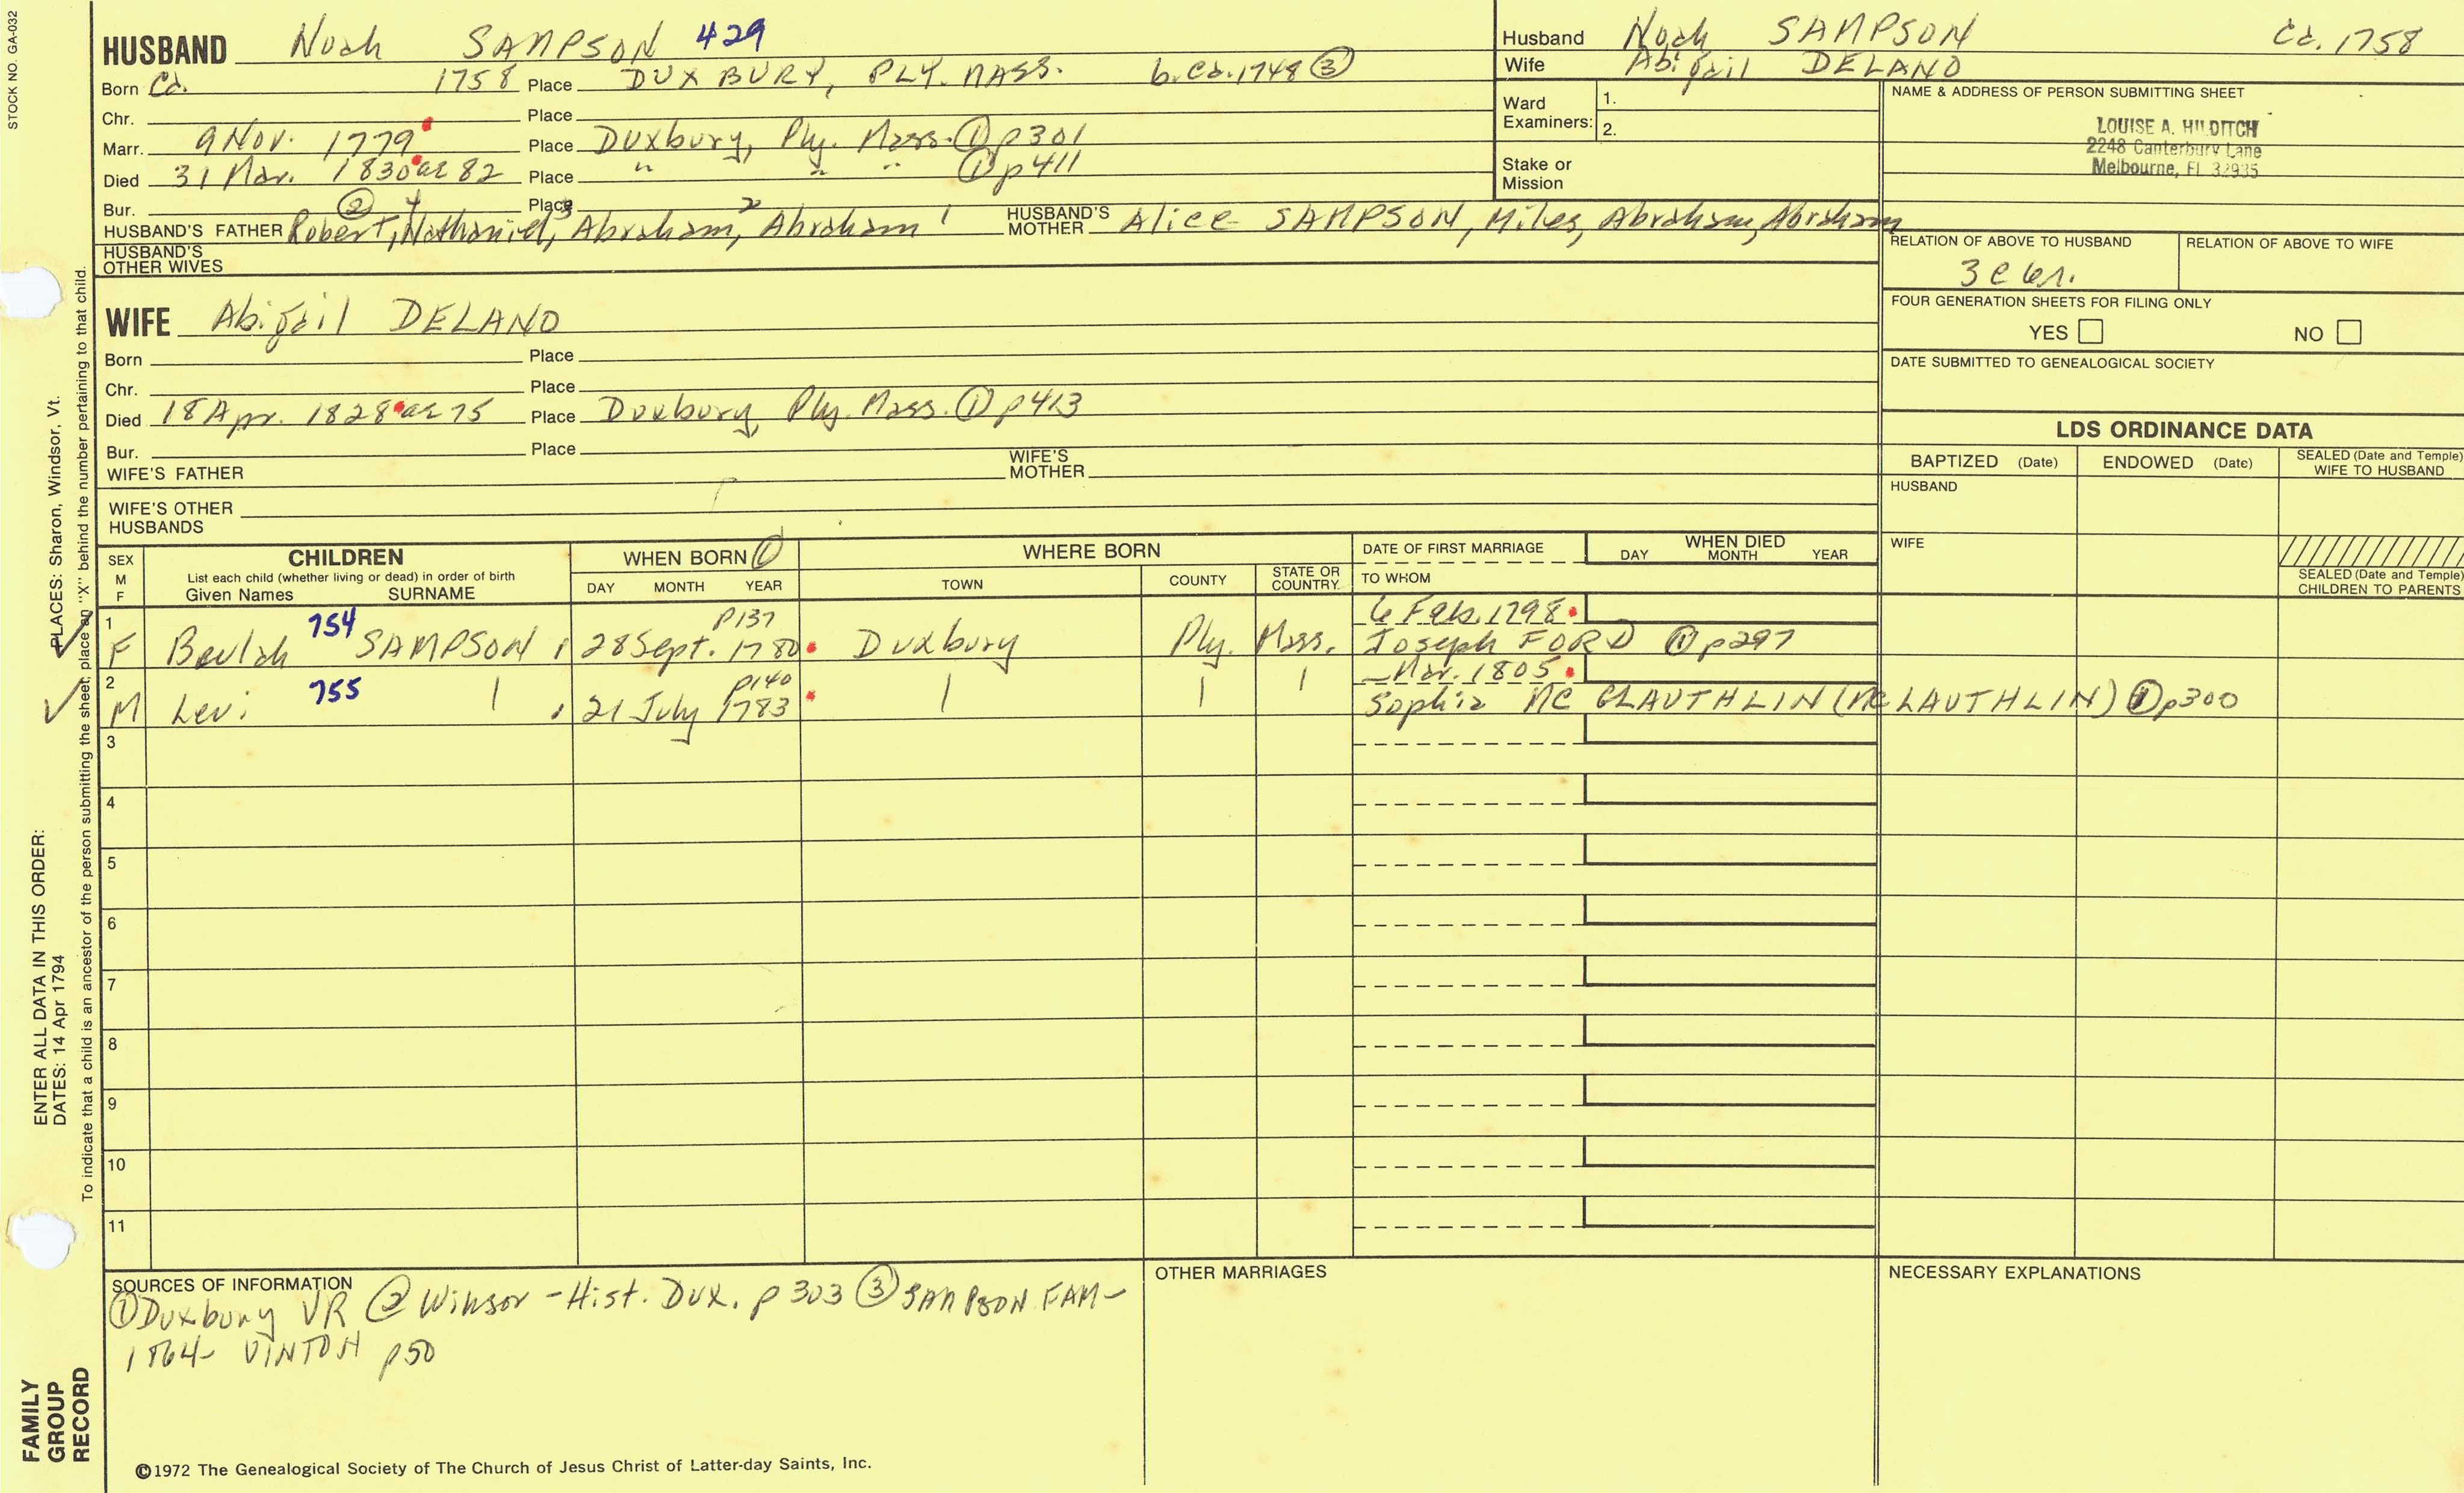 STOCK NO. GA-032
HUSBAND Noah SAMPSON 429
Born Ca. 1758 Place DUXBURY, PLY. MASS. b. ca. 1748 ③
Chr. Place
Marr. 9 Nov. 1779 Place Duxbury, Ply. Mass. ① p301
Died 31 Mar. 1830 ae 82 Place " " " ① p411
Bur. Place
HUSBAND'S FATHER ② Robert, Nathaniel, 4 Abraham, 3 Abraham 2 1 HUSBAND'S MOTHER Alice SAMPSON, Miles, Abraham, Abraham
HUSBAND'S OTHER WIVES
WIFE Abigail DELANO
Born Place
Chr. Place
Died 18 Apr. 1828 ae 75 Place Duxbury, Ply. Mass. ① p413
Bur. Place
WIFE'S FATHER WIFE'S MOTHER
WIFE'S OTHER HUSBANDS
Husband Noah SAMPSON Ca. 1758
Wife Abigail DELANO
Ward Examiners: 1.
2.
Stake or Mission
NAME & ADDRESS OF PERSON SUBMITTING SHEET
LOUISE A. HILDITCH
2248 Canterbury Lane
Melbourne, Fl 32935
RELATION OF ABOVE TO HUSBAND RELATION OF ABOVE TO WIFE
3 c 6r.
FOUR GENERATION SHEETS FOR FILING ONLY
YES NO
DATE SUBMITTED TO GENEALOGICAL SOCIETY
LDS ORDINANCE DATA
BAPTIZED (Date) ENDOWED (Date) SEALED (Date and Temple) WIFE TO HUSBAND
HUSBAND
WIFE
SEALED (Date and Temple) CHILDREN TO PARENTS
SEX M F
CHILDREN
List each child (whether living or dead) in order of birth
Given Names SURNAME
WHEN BORN ①
DAY MONTH YEAR
WHERE BORN
TOWN COUNTY STATE OR COUNTRY
DATE OF FIRST MARRIAGE
TO WHOM
WHEN DIED
DAY MONTH YEAR
1 P137 6 Feb. 1798
F Beulah 754 SAMPSON 28 Sept. 1780 Duxbury Ply. Mass. Joseph FORD ① p297
2 p140 – Mar. 1805
M Levi 755 21 July 1783 Sophia MC GLAUTHLIN (MCLAUTHLIN) ① p300
3
4
5
6
7
8
9
10
11
SOURCES OF INFORMATION
① Duxbury VR ② Winsor - Hist. Dux. p 303 ③ SAMPSON FAM-
1864- VINTON p50
OTHER MARRIAGES
NECESSARY EXPLANATIONS
©1972 The Genealogical Society of The Church of Jesus Christ of Latter-day Saints, Inc.
ENTER ALL DATA IN THIS ORDER:
DATES: 14 Apr 1794 PLACES: Sharon, Windsor, Vt.
To indicate that a child is an ancestor of the person submitting the sheet, place an "X" behind the number pertaining to that child.
FAMILY
GROUP
RECORD